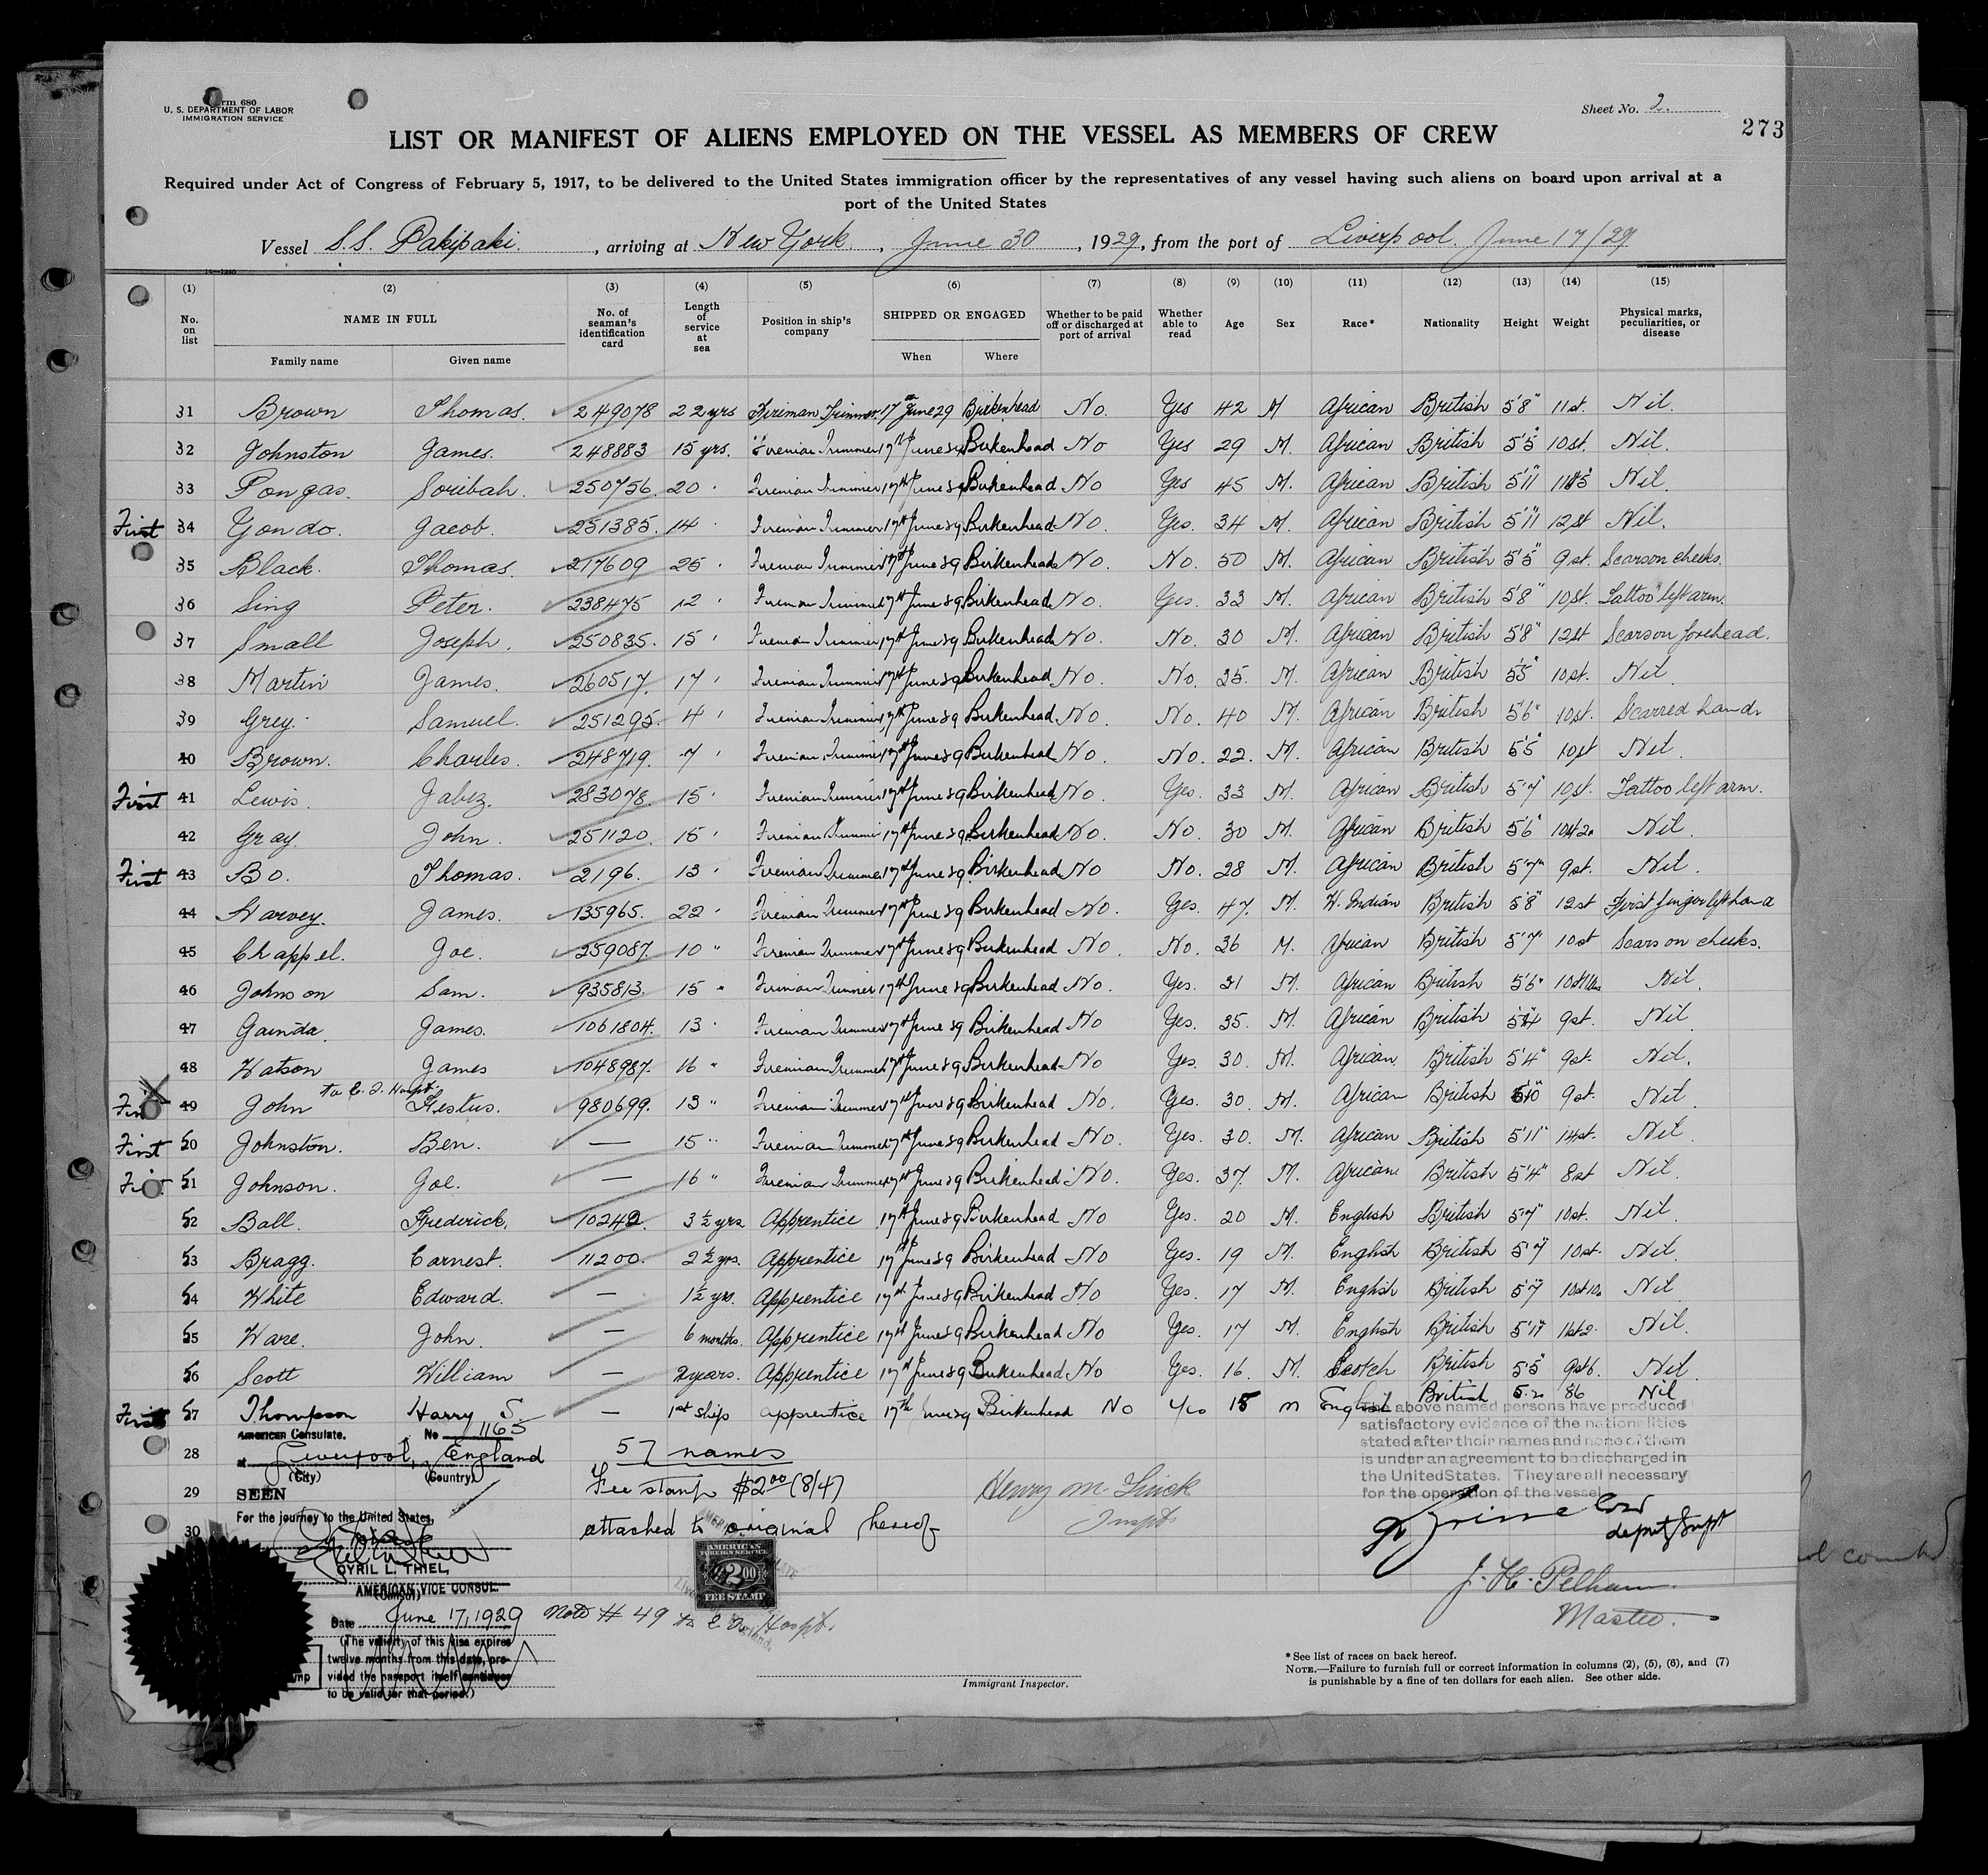 Form 680
U. S. DEPARTMENT OF LABOR
IMMIGRATION SERVICE
Sheet No. 2.
273
LIST OR MANIFEST OF ALIENS EMPLOYED ON THE VESSEL AS MEMBERS OF CREW
Required under Act of Congress of February 5, 1917, to be delivered to the United States immigration officer by the representatives of any vessel having such aliens on board upon arrival at a
port of the United States
Vessel S.S. Pakipaki. , arriving at New York. , June 30 , 1929, from the port of Liverpool June 17/29
(1) (2) (3) (4) (5) (6) (7) (8) (9) (10) (11) (12) (13) (14) (15)
No. on list NAME IN FULL Family name Given name No. of seaman's identification card Length of service at sea Position in ship's company SHIPPED OR ENGAGED When Where Whether to be paid off or discharged at port of arrival Whether able to read Age Sex Race* Nationality Height Weight Physical marks, peculiarities, or disease
31 Brown Thomas. 249078 22 yrs Fireman Trimmer 17th June 29 Birkenhead No. Yes 42 M African British 5'8" 11st. Nil.
32 Johnston James. 248883 15 yrs. Fireman Trimmer 17th June 29 Birkenhead No Yes 29 M. African British 5'5" 10st. Nil.
33 Pongas. Soribah. 250756. 20 " Fireman Trimmer 17th June 29 Birkenhead No Yes 45 M. African British 5'11 Nil.
First 34 Yondo. Jacob. 251385. 14 " Fireman Trimmer 17th June 29 Birkenhead No. Yes. 34 M. African British 5'11 12st Nil.
35 Black. Thomas. 217609 25 " Fireman Trimmer 17th June 29 Birkenhead No. No. 50 M. African British 5'5" 9st. Scars on cheeks.
36 Sing Peter. 238475 12 " Fireman Trimmer 17th June 29 Birkenhead No. Yes. 33 M. African British 5'8" 10st. Tattoo left arm.
37 Small Joseph. 250835. 15 " Fireman Trimmer 17th June 29 Birkenhead No. No. 30 M. African British 5'8" 12st Scars on forehead.
38 Martin James. 260517. 17 " Fireman Trimmer 17th June 29 Birkenhead No. No. 25. M. African British 5'5" 10st. Nil
39 Grey. Samuel. 251295. 4 " Fireman Trimmer 17th June 29 Birkenhead No. No. 40 M. African British 5'6" 10st. Scarred hand.
40 Brown. Charles. 248719. 7 " Fireman Trimmer 17th June 29 Birkenhead No. No. 22. M. African British 5'5" 10st Nil.
First 41 Lewis. Jabez. 283078. 15 " Fireman Trimmer 17th June 29 Birkenhead No. Yes. 33 M. African British 5'7 10st. Tattoo left arm.
42 Gray. John. 251120. 15 " Fireman Trimmer 17th June 29 Birkenhead No. No. 30 M. African British 5'6" Nil.
First 43 Bo. Thomas. 2196. 13 " Fireman Trimmer 17th June 29 Birkenhead No No. 28 M. African British 5'7" 9st. Nil.
44 Harvey. James. 135965. 22 " Fireman Trimmer 17th June 29 Birkenhead No. Yes. 47. M. W. Indian British 5'8" 12st First finger left hand
45 Chappel. Joe. 259087. 10 " Fireman Trimmer 17th June 29 Birkenhead No. No. 36 M. African British 5'7" 10st Scars on cheeks.
46 Johnson Sam. 935813. 15 " Fireman Trimmer 17th June 29 Birkenhead No. Yes. 31 M. African British 5'6" Nil.
47 Gainda. James. 1061804. 13 " Fireman Trimmer 17th June 29 Birkenhead No Yes. 35. M. African British 9st. Nil
48 Watson James 1048987. 16 " Fireman Trimmer 17th June 29 Birkenhead No Yes. 30. M. African. British 5'4" 9st. Nil.
to E. I. Hospt.
First 49 John Festus. 980699. 13 " Fireman Trimmer 17th June 29 Birkenhead No. Yes. 30. M. African British 9st. Nil
First 50 Johnston. Ben. — 15 " Fireman Trimmer 17th June 29 Birkenhead No. Yes. 30. M. African British 5'11" 14st. Nil.
First 51 Johnson. Joe. — 16 " Fireman Trimmer 17th June 29 Birkenhead No. Yes. 37. M. African British 5'4" 8st Nil.
52 Ball. Frederick. 10242. 3½ yrs Apprentice 17th June 29 Birkenhead No Yes. 20 M. English British 5'7" 10st. Nil.
53 Bragg. Earnest. 11200. 2½ yrs. Apprentice 17th June 29 Birkenhead No Yes. 19 M. English British 5'7" 10st. Nil.
54 White Edward. — 1½ yrs. Apprentice 17th June 29 Birkenhead No Yes. 17 M. English British 5'7 Nil
55 Ware. John. — 6 months. Apprentice 17th June 29 Birkenhead No Yes. 17 M. English British Nil.
56 Scott William — 2 years. Apprentice 17th June 29 Birkenhead No Yes. 16. M. Scotch British 5'5" 9st6. Nil.
First 57 Thompson Harry S. — 1st ship apprentice 17th June 29 Birkenhead No Yes 15 m English British 5.2 86 Nil
American Consulate. No 1165
28 at Liverpool, England
(City) (Country)
57 names
29 SEEN
Fee stamp $2.00 (8/4)
30 For the journey to the United States,
attached to original hereof
CYRIL L. THIEL,
AMERICAN VICE CONSUL.
(Consul)
Date June 17, 1929
(The validity of this visa expires
twelve months from this date, pro-
vided the passport itself continues
to be valid for that period.)
AMERICAN
FOREIGN SERVICE
2.00
FEE STAMP
Note # 49 to E. I. Hospt.
Henry M
Inspt
The above named persons have produced
satisfactory evidence of the nationalities
stated after their names and none of them
is under an agreement to be discharged in
the United States. They are all necessary
for the operation of the vessel
deputy Supt
J. H. Pelham.
Master.
Immigrant Inspector.
*See list of races on back hereof.
NOTE.—Failure to furnish full or correct information in columns (2), (5), (6), and (7)
is punishable by a fine of ten dollars for each alien. See other side.